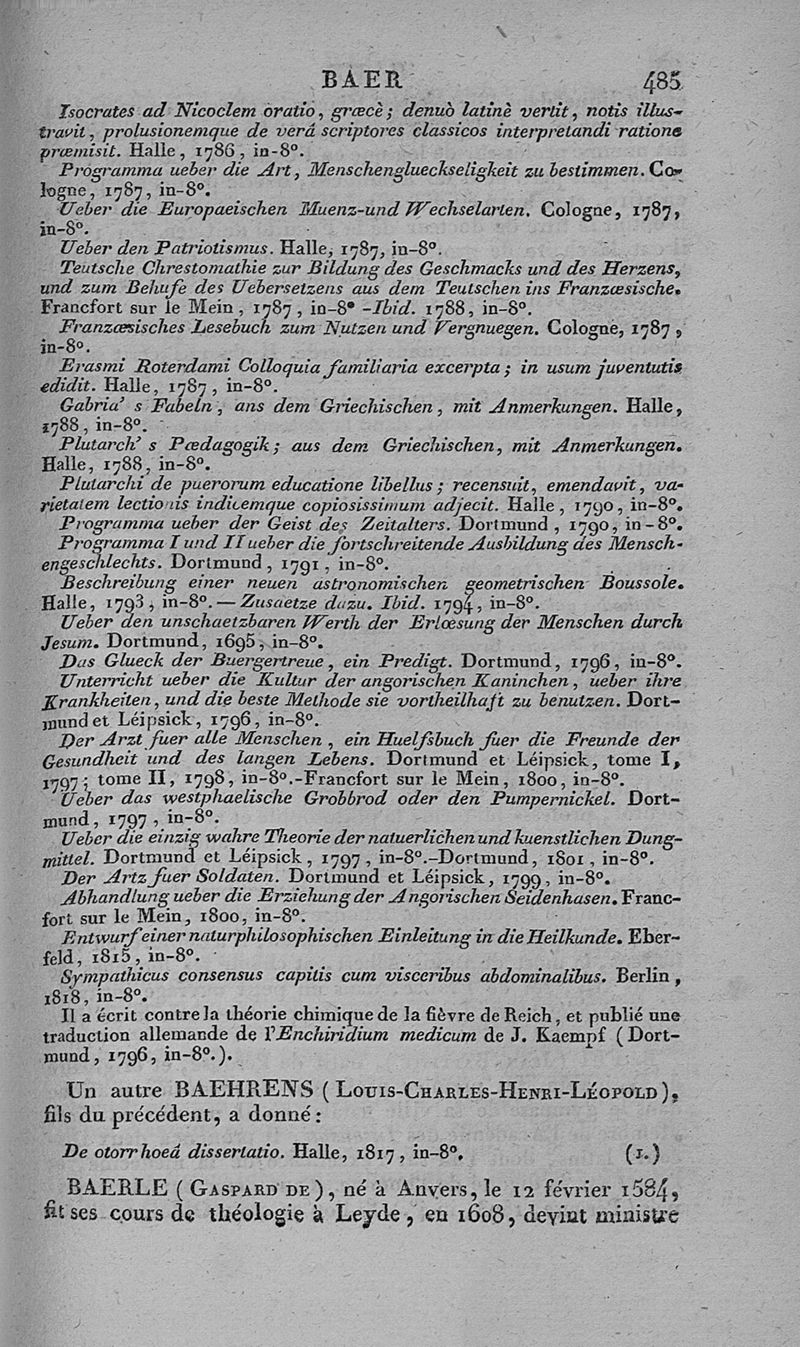 BAER 485
Isocrates ad Nicoclem oratio, græcè; denuò latinè vertit, notis illus-
travit, prolusionemque de verâ scriptores classicos interpretandi ratione
præmisit. Halle, 1786, in-8°.
Programma ueber die Art, Menschenglueckseligkeit zu bestimmen. Co-
logne, 1787, in-8°.
Ueber die Europaeischen Muenz-und Wechselarten. Cologne, 1787,
in-8°.
Ueber den Patriotismus. Halle, 1787, in-8°.
Teutsche Chrestomathie zur Bildung des Geschmacks und des Herzens,
und zum Behufe des Uebersetzens aus dem Teutschen ins Franzœsische.
Francfort sur le Mein, 1787, in-8° -Ibid. 1788, in-8°.
Franzœsisches Lesebuch zum Nutzen und Vergnuegen. Cologne, 1787,
in-8°.
Erasmi Roterdami Colloquia familiaria excerpta; in usum juventutis
edidit. Halle, 1787, in-8°.
Gabria' s Fabeln, ans dem Griechischen, mit Anmerkungen. Halle,
1788, in-8°.
Plutarch' s Pædagogik; aus dem Griechischen, mit Anmerkungen.
Halle, 1788, in-8°.
Plutarchi de puerorum educatione libellus; recensuit, emendavit, va-
rietatem lectionis indicemque copiosissimum adjecit. Halle, 1790, in-8°.
Programma ueber der Geist des Zeitalters. Dortmund, 1790, in-8°.
Programma I und II ueber die fortschreitende Ausbildung des Mensch-
engeschlechts. Dortmund, 1791, in-8°.
Beschreibung einer neuen astronomischen geometrischen Boussole.
Halle, 1793, in-8°. — Zusaetze dazu. Ibid. 1794, in-8°.
Ueber den unschaetzbaren Werth der Erlœsung der Menschen durch
Jesum. Dortmund, 1695, in-8°.
Das Glueck der Buergertreue, ein Predigt. Dortmund, 1796, in-8°.
Unterricht ueber die Kultur der angorischen Kaninchen, ueber ihre
Krankheiten, und die beste Methode sie vortheilhaft zu benutzen. Dort-
mund et Léipsick, 1796, in-8°.
Der Arzt fuer alle Menschen, ein Huelfsbuch fuer die Freunde der
Gesundheit und des langen Lebens. Dortmund et Léipsick, tome I,
1797; tome II, 1798, in-8°.-Francfort sur le Mein, 1800, in-8°.
Ueber das westphaelische Grobbrod oder den Pumpernickel. Dort-
mund, 1797, in-8°.
Ueber die einzig wahre Theorie der natuerlichen und kuenstlichen Dung-
mittel. Dortmund et Léipsick, 1797, in-8°.-Dortmund, 1801, in-8°.
Der Artz fuer Soldaten. Dortmund et Léipsick, 1799, in-8°.
Abhandlung ueber die Erziehung der Angorischen Seidenhasen. Franc-
fort sur le Mein, 1800, in-8°.
Entwurf einer naturphilosophischen Einleitung in die Heilkunde. Eber-
feld, 1815, in-8°.
Sympathicus consensus capitis cum visceribus abdominalibus. Berlin,
1818, in-8°.
Il a écrit contre la théorie chimique de la fièvre de Reich, et publié une
traduction allemande de l'Enchiridium medicum de J. Kaempf (Dort-
mund, 1796, in-8°.).
Un autre BAEHRENS (Louis-Charles-Henri-Léopold),
fils du précédent, a donné:
De otorrhoeâ dissertatio. Halle, 1817, in-8°. (1.)
BAERLE (Gaspard de), né à Anvers, le 12 février 1584,
fit ses cours de théologie à Leyde, en 1608, devint ministre